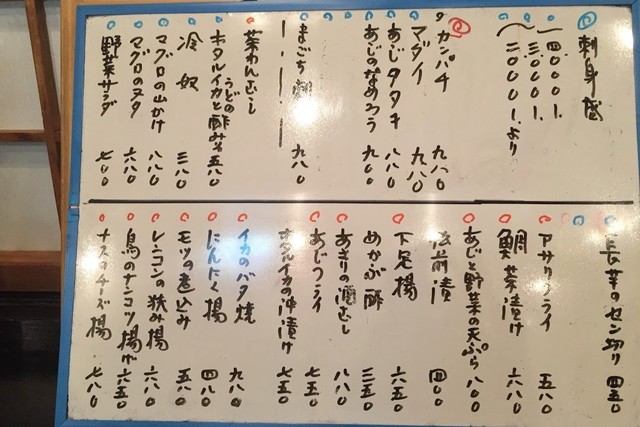 刺身盛
一四〇〇〇1.
三〇〇〇1.
二〇〇〇1.より
カンパチ 九八〇
マダイ 九八〇
あじタタキ 八八〇
あじのなめろう 九〇〇
まごち刺 九八〇
茶わんむし
ホタルイカとうどの酢みそ 五八〇
冷奴 三八〇
マグロの山かけ 八八〇
マグロのヌタ 六八〇
野菜サラダ 七〇〇
長芋のセン切り 四五〇
アサリフライ 五八〇
鯛茶漬け 六八〇
あじと野菜の天ぷら 八〇〇
松前漬 四〇〇
下足揚 六五〇
めかぶ酢 三五〇
あさりの酒むし 八八〇
あじフライ 七五〇
ホタルイカの沖漬け 七五〇
イカのバタ焼 九八〇
にんにく揚 四八〇
モツの煮込み 五八〇
レンコンの挟み揚 六八〇
鳥のナンコツ揚げ 六五〇
ナスのチーズ揚 七八〇